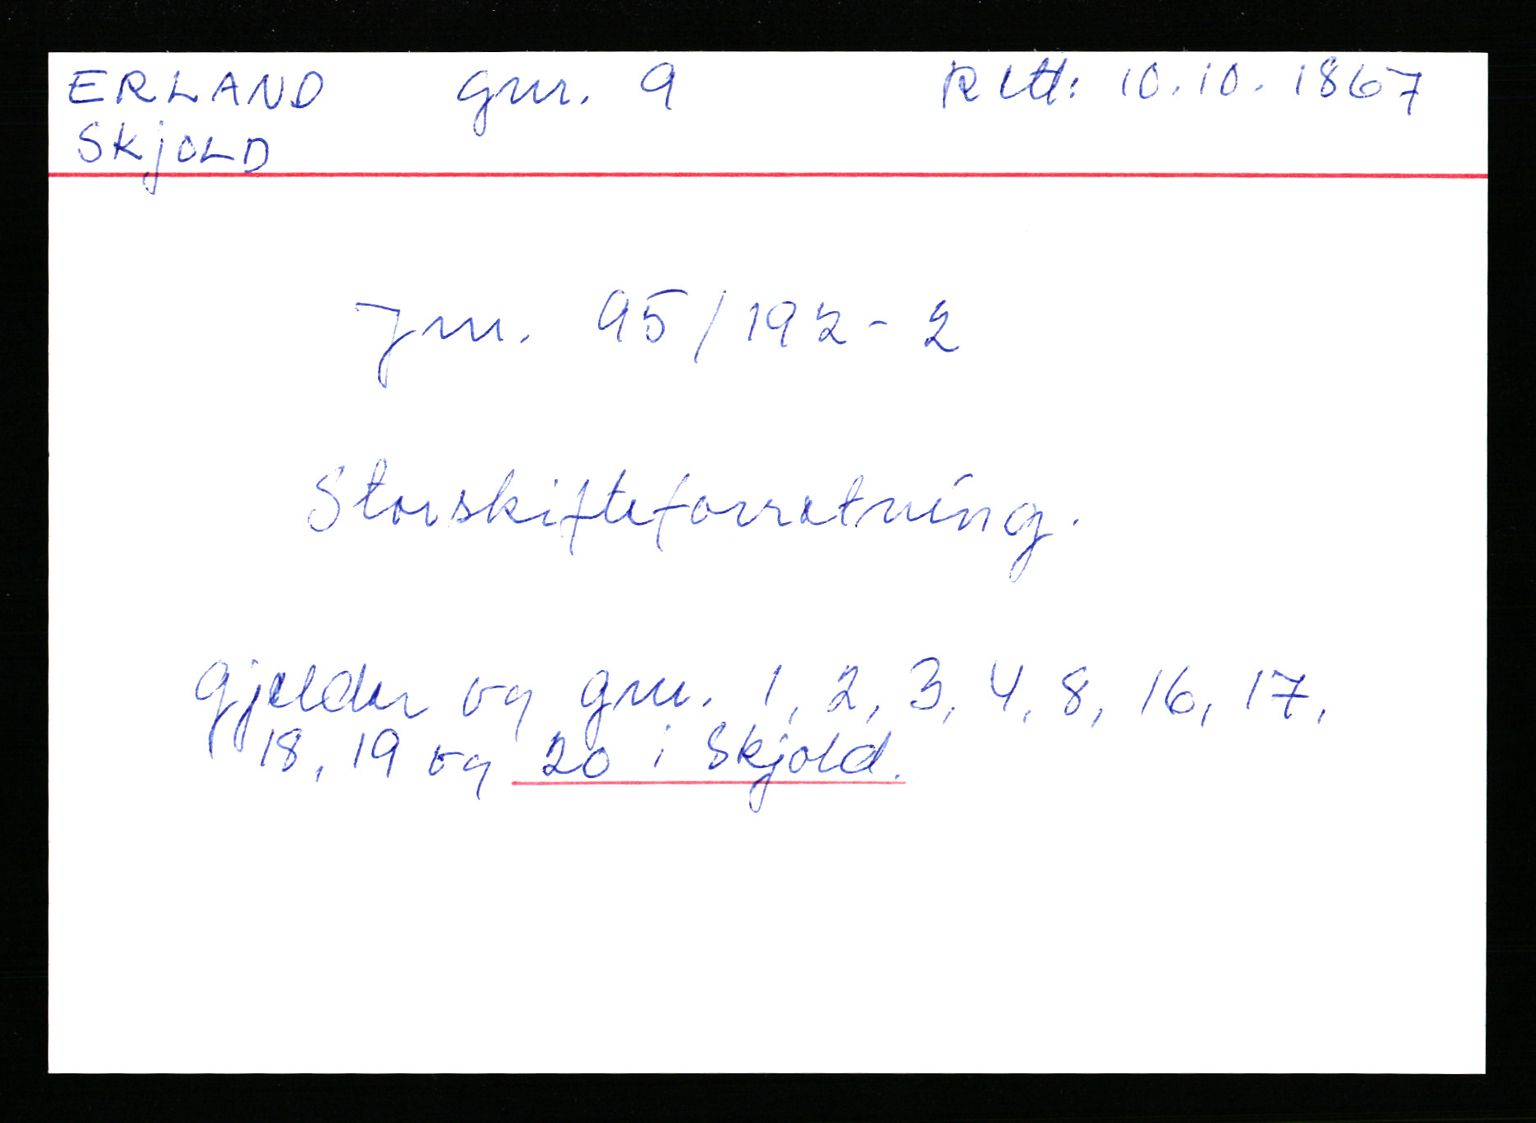 ERLAND gnr. 9 Rett: 10.10.1867
SKjOLD
Jnr. 95/192-2
Storskifteforretning.
Gjelder og gnr. 1, 2, 3, 4, 8, 16, 17,
18, 19 og 20 i Skjold.